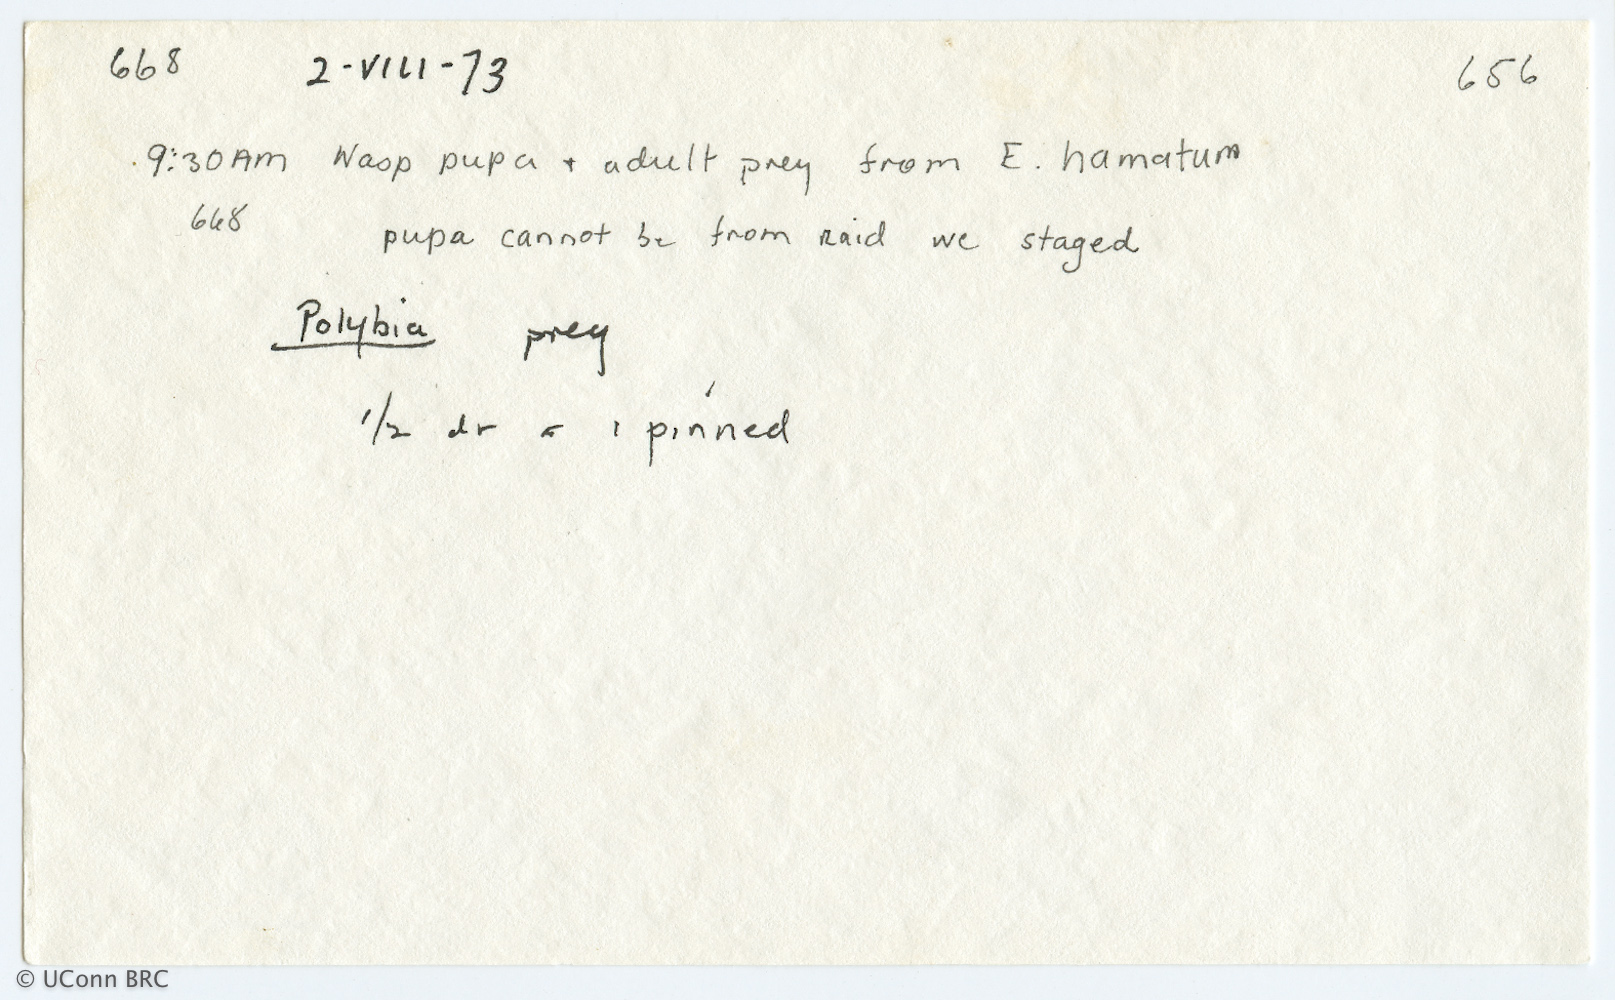 668 2-VIII-73 656
9:30AM Wasp pupa + adult prey from E. hamatum
668 pupa cannot be from raid we staged
Polybia prey
1/2 dr 1 pinned
© UConn BRC